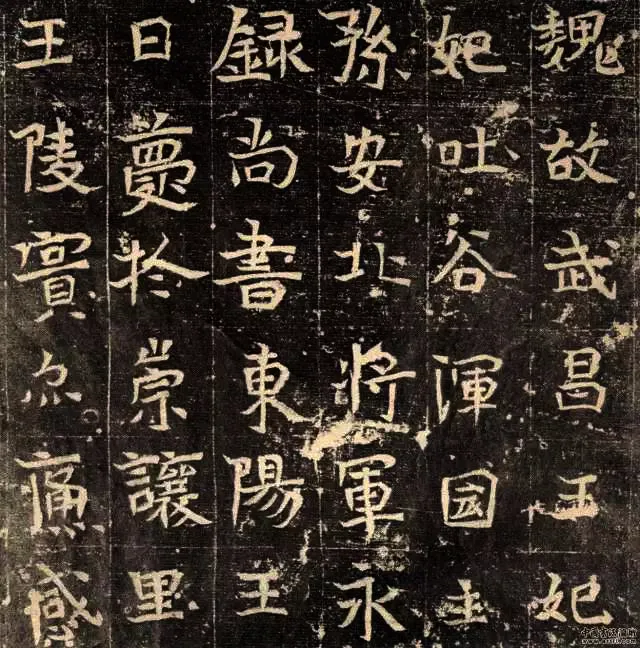 魏故武昌王妃
妃吐谷渾国主
孫安北將軍永
録尚書東陽王
日薨於崇讓里
王陵實尒感